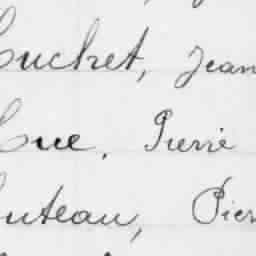 Cuchet, Jean
Cue, Pierre
Cuteau, Pier